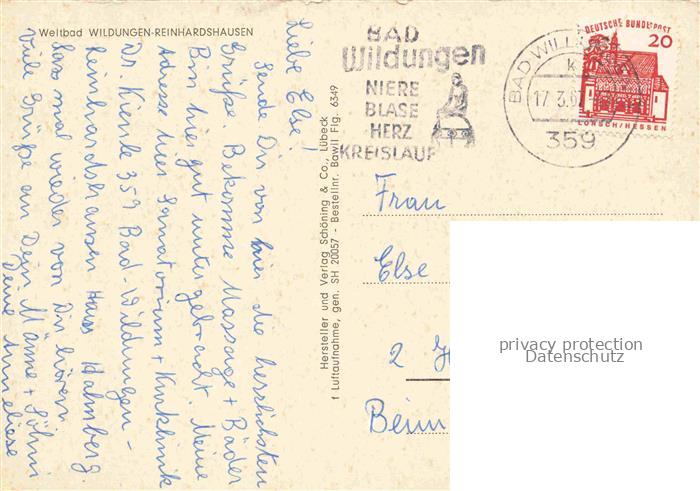 Weltbad WILDUNGEN-REINHARDSHAUSEN
Liebe Else!
Sende Dir von hier die herzlichsten
Grüße. Bekomme Massage + Bäder
Bin hier gut untergebracht. Meine
Adresse hier Sanatorium + Kurklinik
Dr. Kienle 359 Bad-Wildungen-
Reinhardshausen Haus Hahnberg.
Lass mal wieder von Dir hören
Viele Grüße an Dein Männe + Söhne
Deine
Hersteller und Verlag Schöning & Co., Lübeck
† Luftaufnahme, gen. SH 20057 - Bestellnr. Bawil Flg. 6349
BAD
Wildungen
NIERE
BLASE
HERZ
KREISLAUF
BAD WILDUNGEN
k
17.3.67
359
DEUTSCHE BUNDESPOST
20
LORSCH/HESSEN
Frau
Else
2
privacy protection
Datenschutz